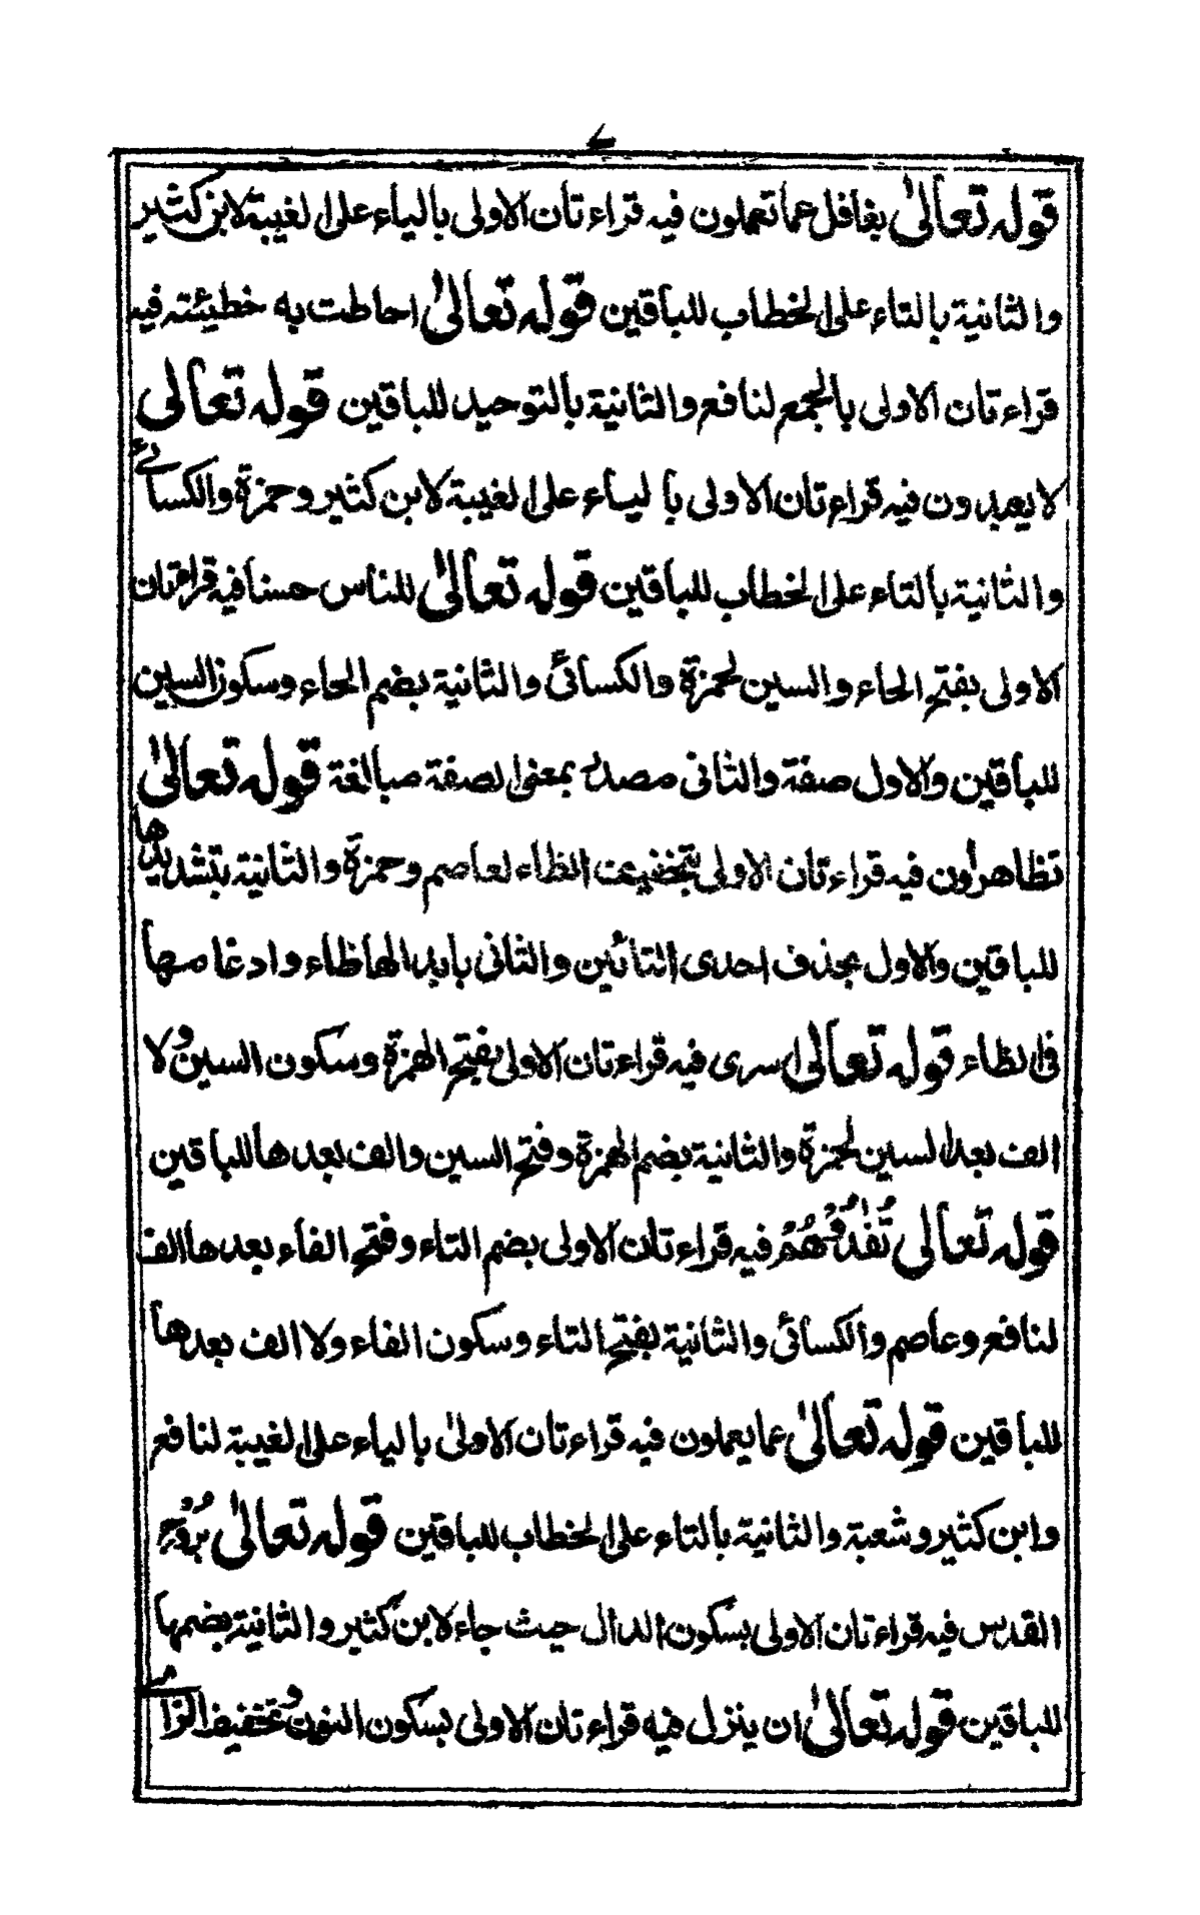 قوله تعالىٰ بغافل عما تعملون فيه قراءتان الاولى بالياء على الغيبة لابن كثير
والثانية بالتاء على الخطاب للباقين قوله تعالىٰ احاطت به خطيئته فيه
قراءتان الاولى بالجمع لنافع والثانية بالتوحيد للباقين قوله تعالى
لا يعبدون فيه قراءتان الاولى بالياء على الغيبة لابن كثير وحمزة والكسائے
والثانية بالتاء على الخطاب للباقين قوله تعالىٰ للناس حسنا فيه قراءتان
الاولى بفتح الحاء والسين لحمزة والكسائى والثانية بضم الحاء وسكون السين
للباقين والاول صفة والثانى مصدر بمعنى الصفة مبالغة قوله تعالىٰ
تظاهرون فيه قراءتان الاولى بتخفيف الظاء لعاصم وحمزة والثانية بتشديدها
للباقين والاول بحذف احدى التائين والثانى بابدالها ظاء وادغامها
فى الظاء قوله تعالىٰ اسرى فيه قراءتان الاولى بفتح الهمزة وسكون السين ولا
الف بعد السين لحمزة والثانية بضم الهمزة وفتح السين والف بعدها للباقين
قوله تعالى تُفٰدُوْهُمْ فيه قراءتان الاولى بضم التاء وفتح الفاء بعدها الف
لنافع وعاصم والكسائى والثانية بفتح التاء وسكون الفاء ولا الف بعدها
للباقين قوله تعالىٰ عما يعملون فيه قراءتان الاولىٰ بالياء على الغيبة لنافع
وابن كثير وشعبة والثانية بالتاء على الخطاب للباقين قوله تعالىٰ بُرُوْحِ
القدس فيه قراءتان الاولى بسكون الدال حيث جاء لابن كثير والثانية بضمها
للباقين قوله تعالىٰ ان ينزل فيه قراءتان الاولى بسكون النون وتخفيف الزاے